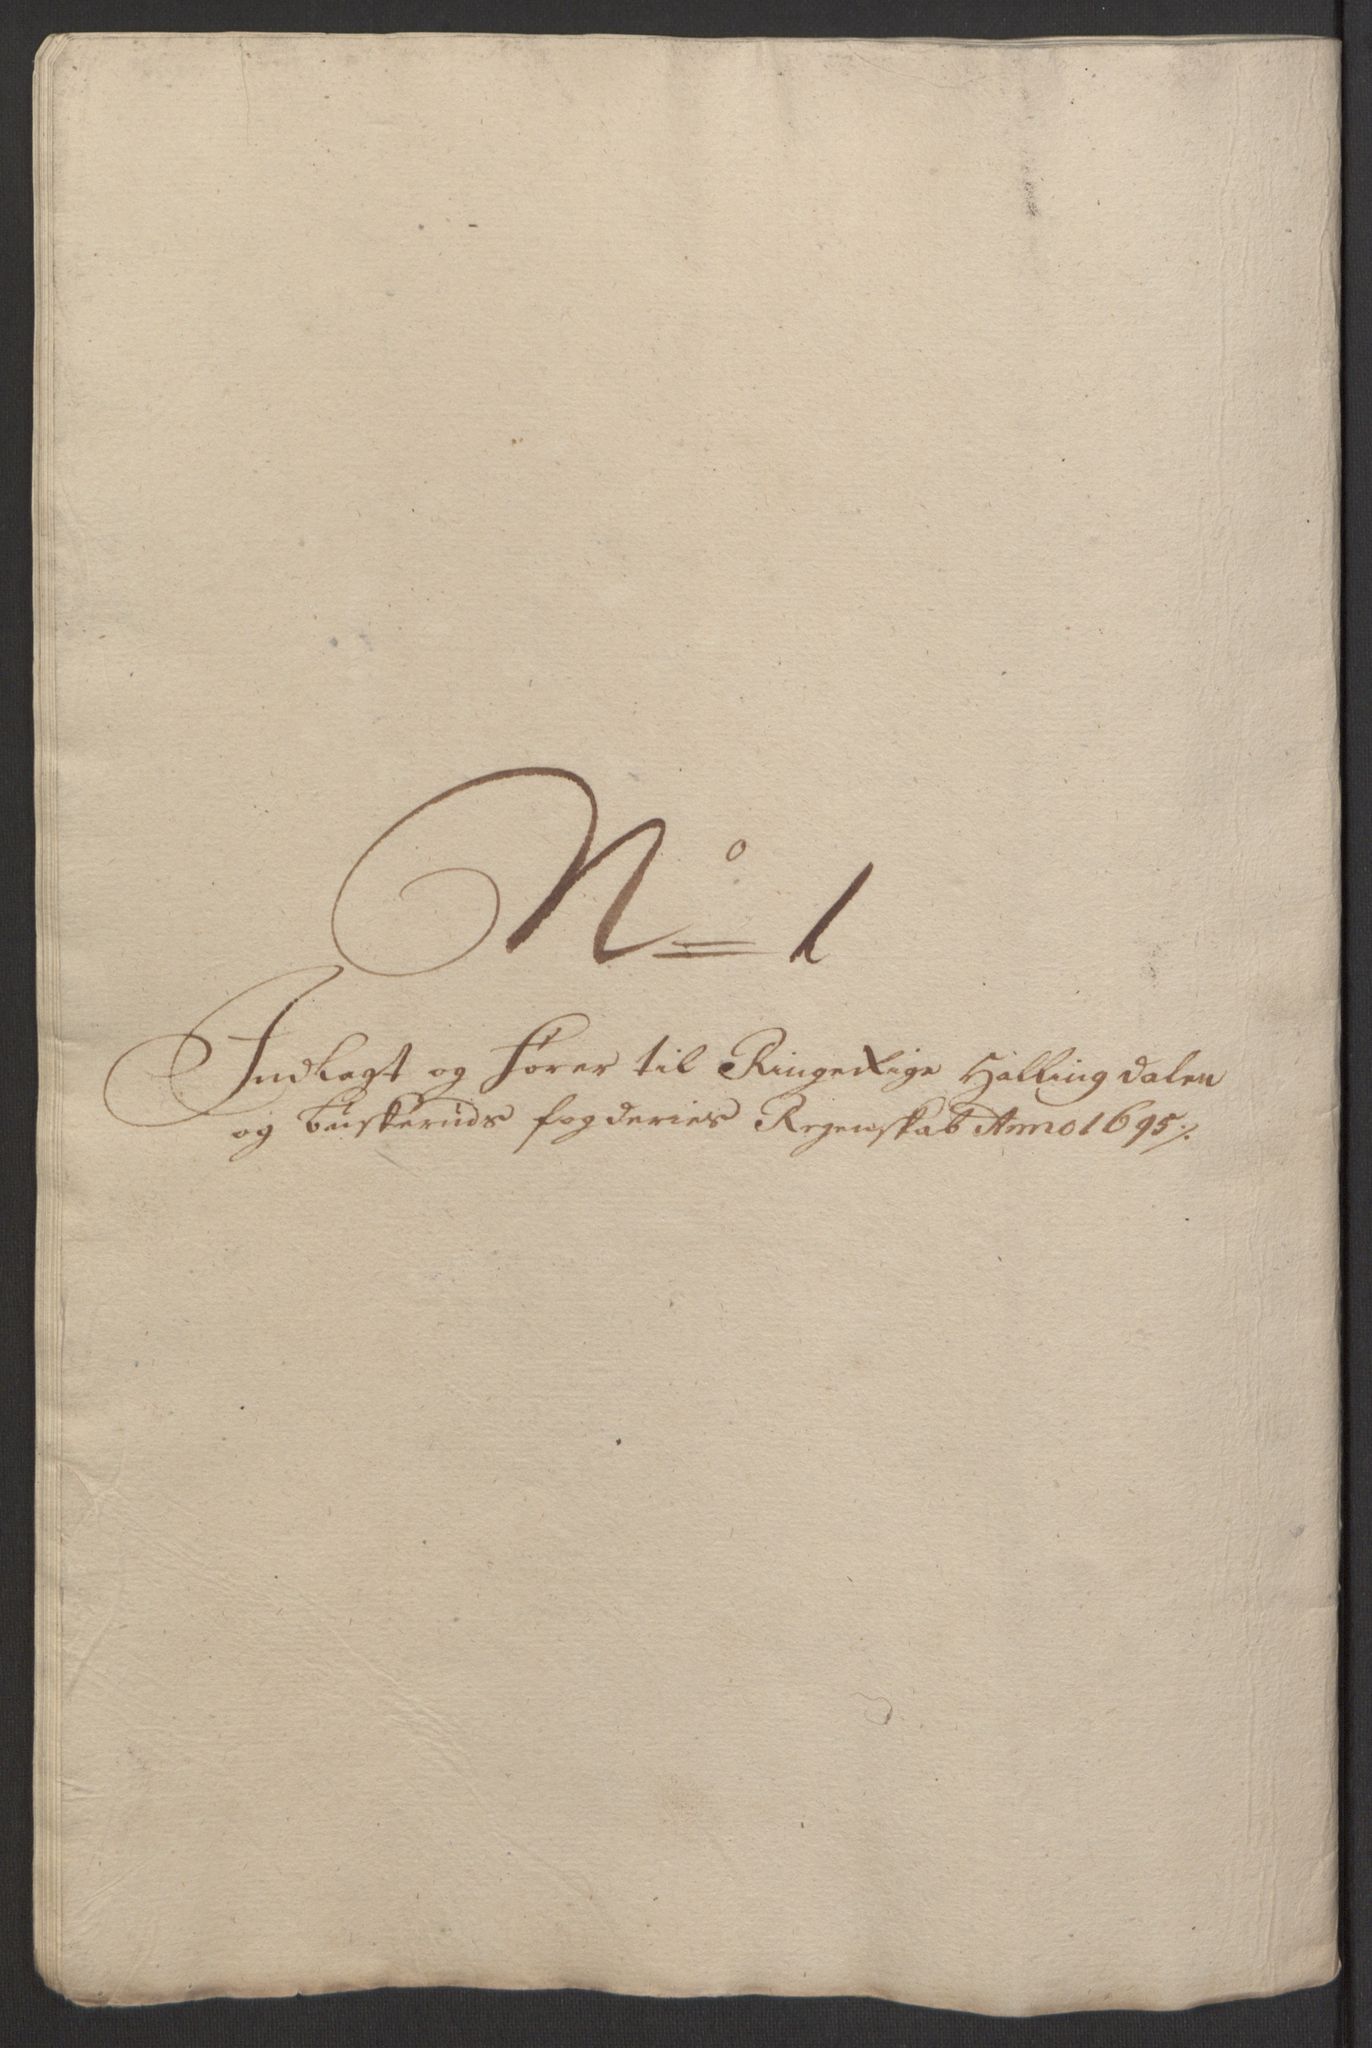 No 1
Indlagt og hører til Ringerige Hallingdalen
og buskeruds fogderies Regenskab Anno 1695 ./.